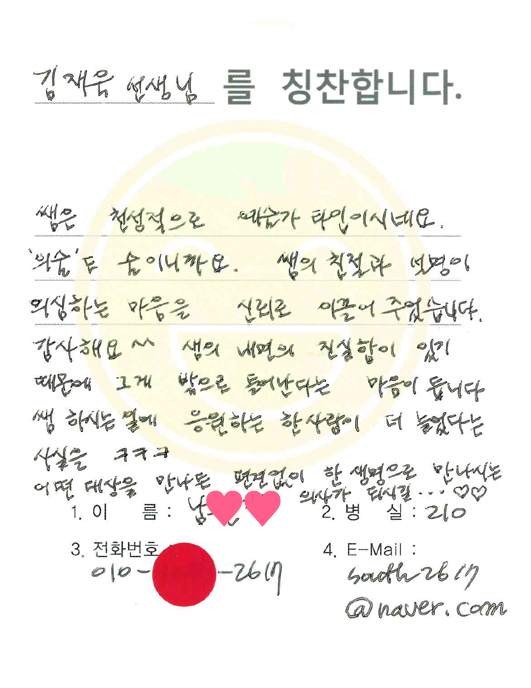 김재욱 선생님 를 칭찬합니다.
쌤은 천성적으로 예술가 타입이시네요.
'의술'도 술이니까요. 쌤의 친절과 설명이
의심하는 마음을 신뢰로 이끌어 주었습니다.
감사해요 ^^ 샘의 내면의 진실함이 있기
때문에 그게 밖으로 드러난다는 마음이 듭니다
쌤 하시는 일에 응원하는 한사람이 더 늘었다는
사실을 ㅋㅋㅋ
어떤 대상을 만나든 편견없이 한 생명으로 만나시는
의사가 되시길... ♡♡
1. 이 름 : 남 2. 병 실 : 210
3. 전화번호 : 4. E-Mail :
010- -2617 south2617
@naver.com